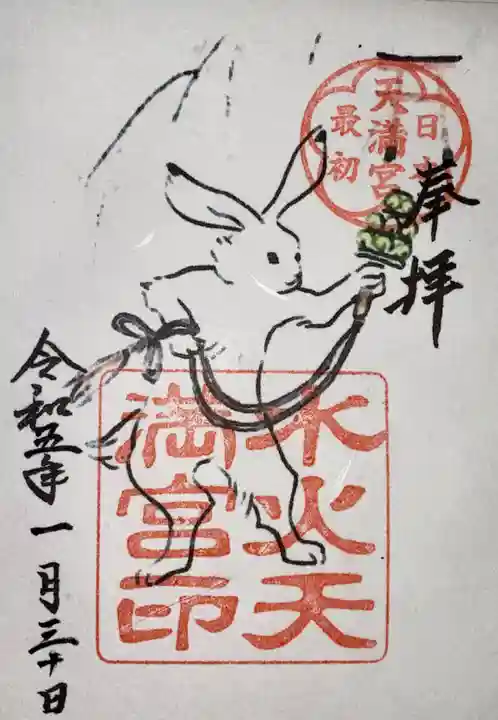 日本
天満宮
最初
奉拝
水火天
満宮印
令和五年一月三十日